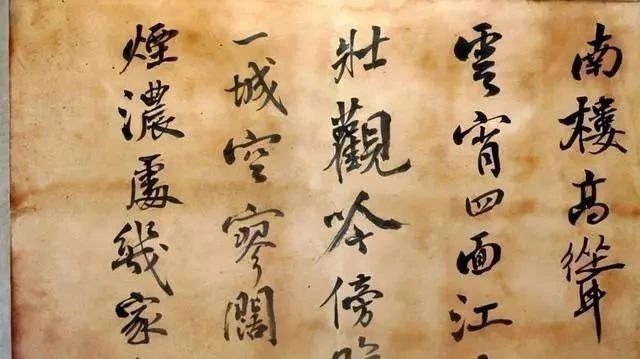 南樓高聳
雲宵四面江
壯觀吟傍
一城空寥闊
煙濃處幾家